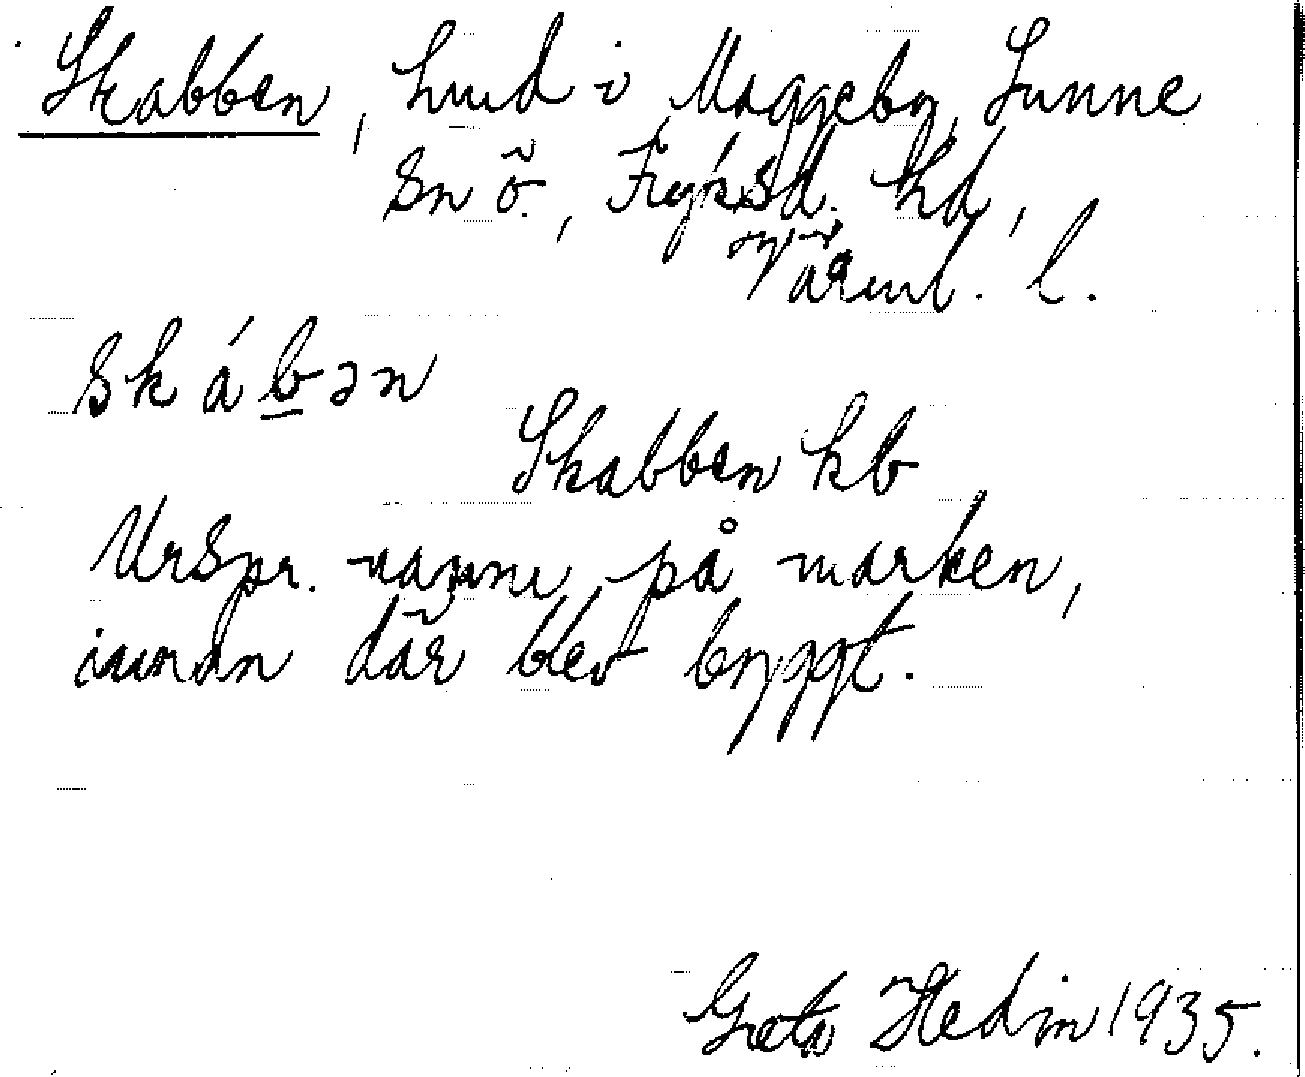 Skabben, hmd i Maggeby, Sunne
sn ö., Fryksd. hd,
Värml. l.
sk á b̲ ə n
Skabben kb
Urspr. namn på marken,
innan där blev byggt.
Greta Hedin 1935.